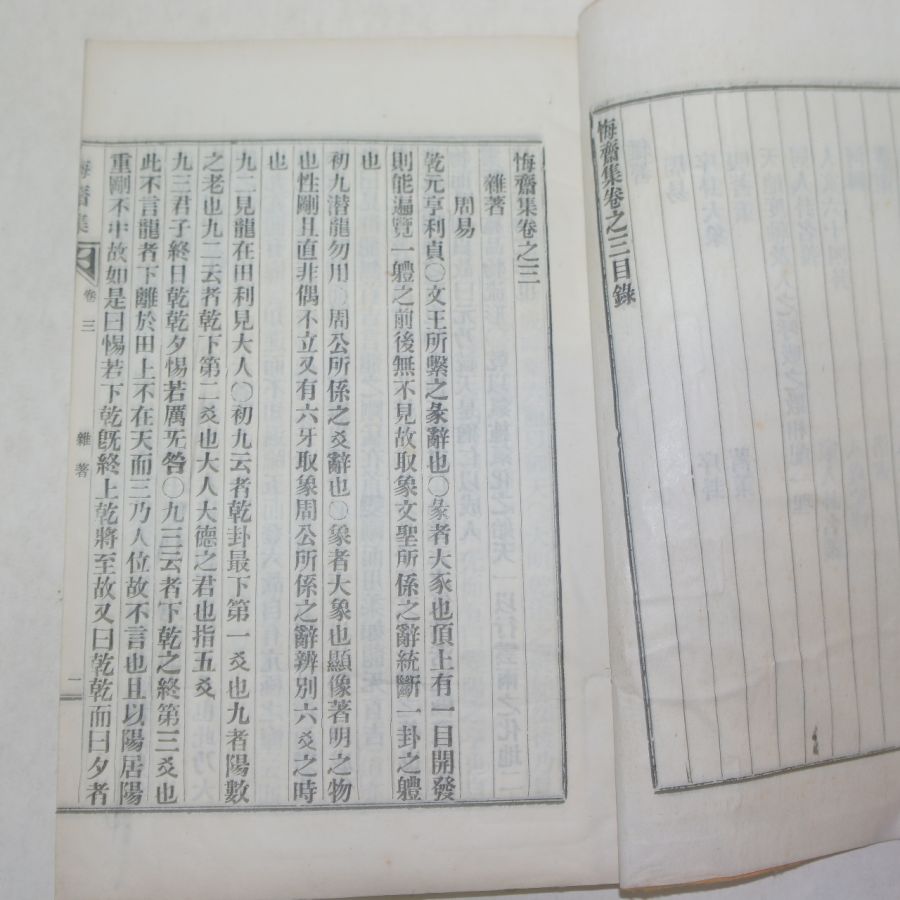 悔齋集卷之三目錄
悔齋集卷之三
雜著
周易
乾元亨利貞○文王所繫之彖辭也○彖者大豕也頂上有一目開發
則能遍覽一軆之前後無不見故取象文聖所係之辭統斷一卦之軆
也
初九潛龍勿用○周公所係之爻辭也○象者大象也顯像著明之物
也性剛且直非偶不立又有六牙取象周公所係之辭辨別六爻之時
也
九二見龍在田利見大人○初九云者乾卦最下第一爻也九者陽數
之老也九二云者乾下第二爻也大人大德之君也指五爻
九三君子終日乾乾夕惕若厲旡咎○九三云者下乾之終第三爻也
此不言龍者下離於田上不在天而三乃人位故不言也且以陽居陽
重剛不中故如是曰惕若下乾旣終上乾將至故又曰乾乾而曰夕者
悔齋集
卷三
雜著